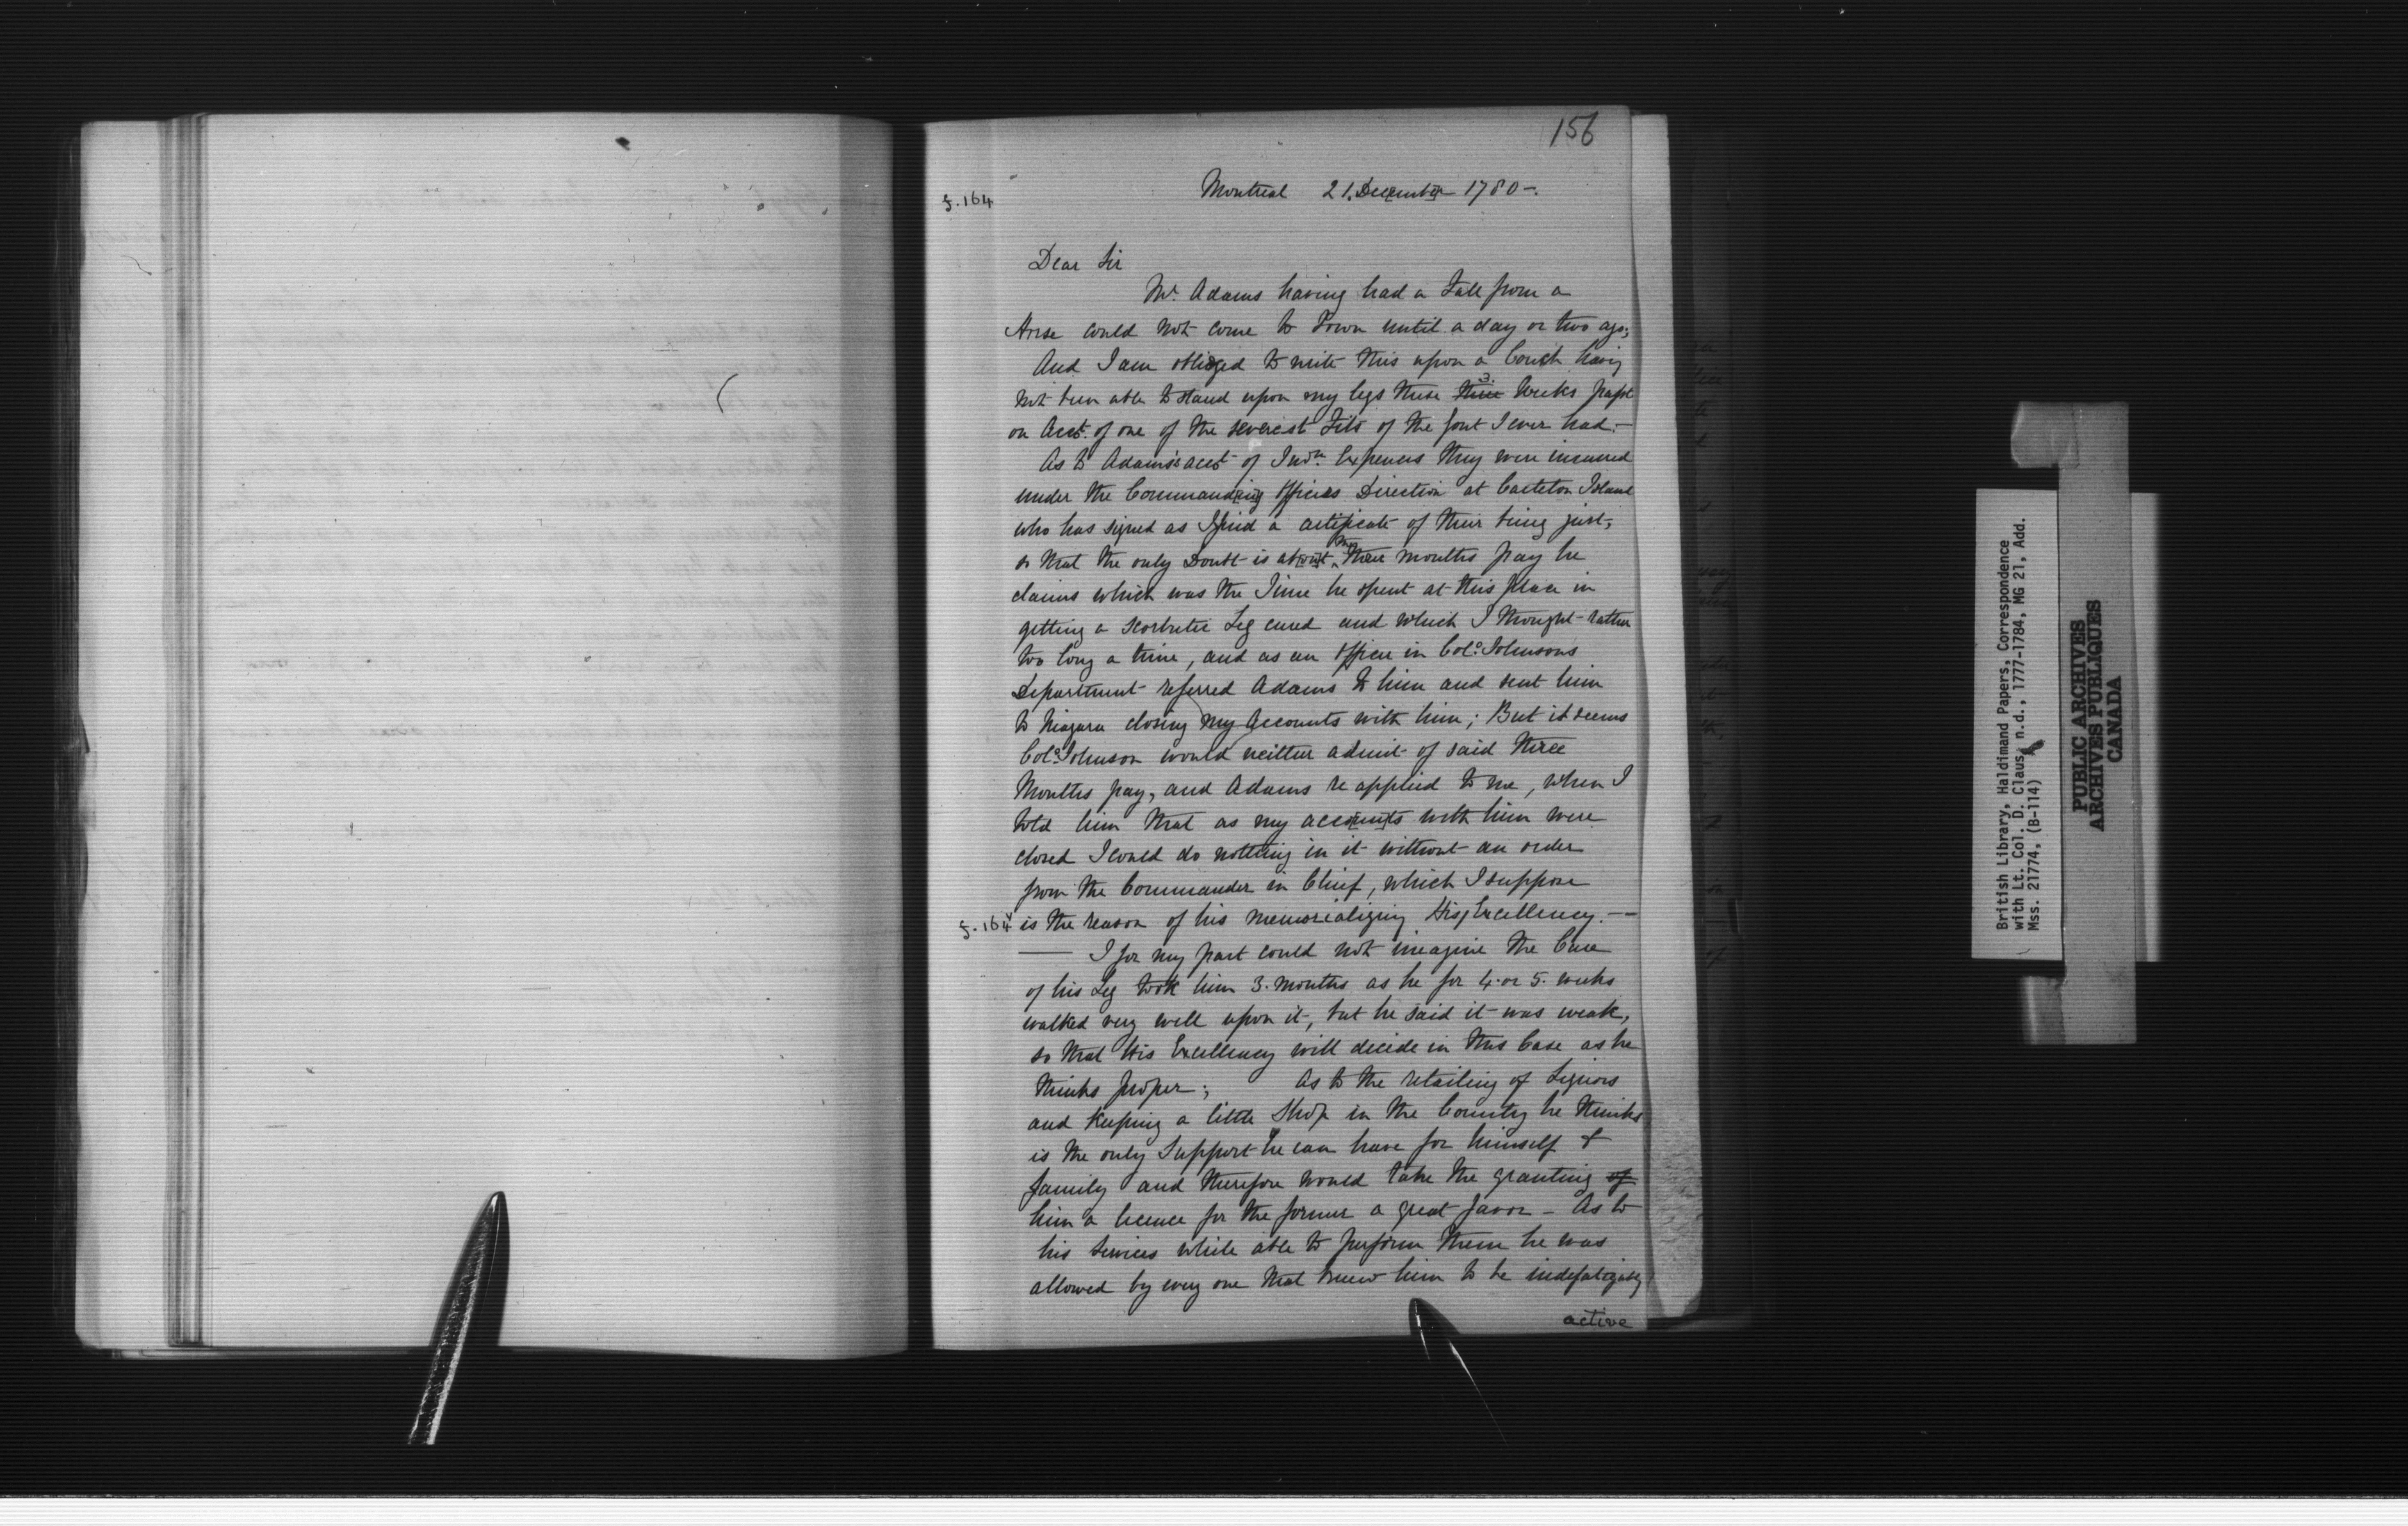 156
f. 164
Montreal 21. December 1780-.
Dear Sir
Mr. Adams having had a Fall from a
Horse could not come to Town until a day or two ago;
And I am oblidged to write this upon a Couch having
not been able to stand upon my legs these three 3. Weeks past
on Acct. of one of the severest Fits of the Gout I ever had.-
As to Adams's acct of Indn. Expences they were incurred
under the Commanding Officers Direction at Carleton Island
who has signed as I find a certificate of their being just,
so that the only Doubt is about the three months pay he
claims which was the Time he spent at this place in
getting a scorbutic Leg cured and which I thought rather
too long a time, and as an Officer in Colo. Johnsons
Department referred Adams to him and sent him
to Niagara closing my Accounts with him; But it seems
Colo. Johnson would neither admit of said three
Months pay, and Adams re applied to me, when I
told him that as my accounts with him were
closed I could do nothing in it without an order
from the Commander in Chief, which I suppose
f. 164v is the reason of his memorializing His Excellency.--
— I for my part could not imagine the Cure
of his Leg took him 3. months as he for 4. or 5. weeks
walked very well upon it, but he said it was weak,
so that His Excellency will decide in this Case as he
thinks proper; As to the retailing of Liquors
and keeping a little Shop in the Country he thinks
is the only Support he can have for himself &
family and therefore would take the granting of
him a licence for the former a great favor - As to
his Services while able to perform them he was
allowed by every one that knew him to be indefatigably
active
British Library, Haldimand Papers, Correspondence
with Lt. Col. D. Claus, n.d., 1777-1784, MG 21, Add.
Mss. 21774, (B-114)
PUBLIC ARCHIVES
ARCHIVES PUBLIQUES
CANADA